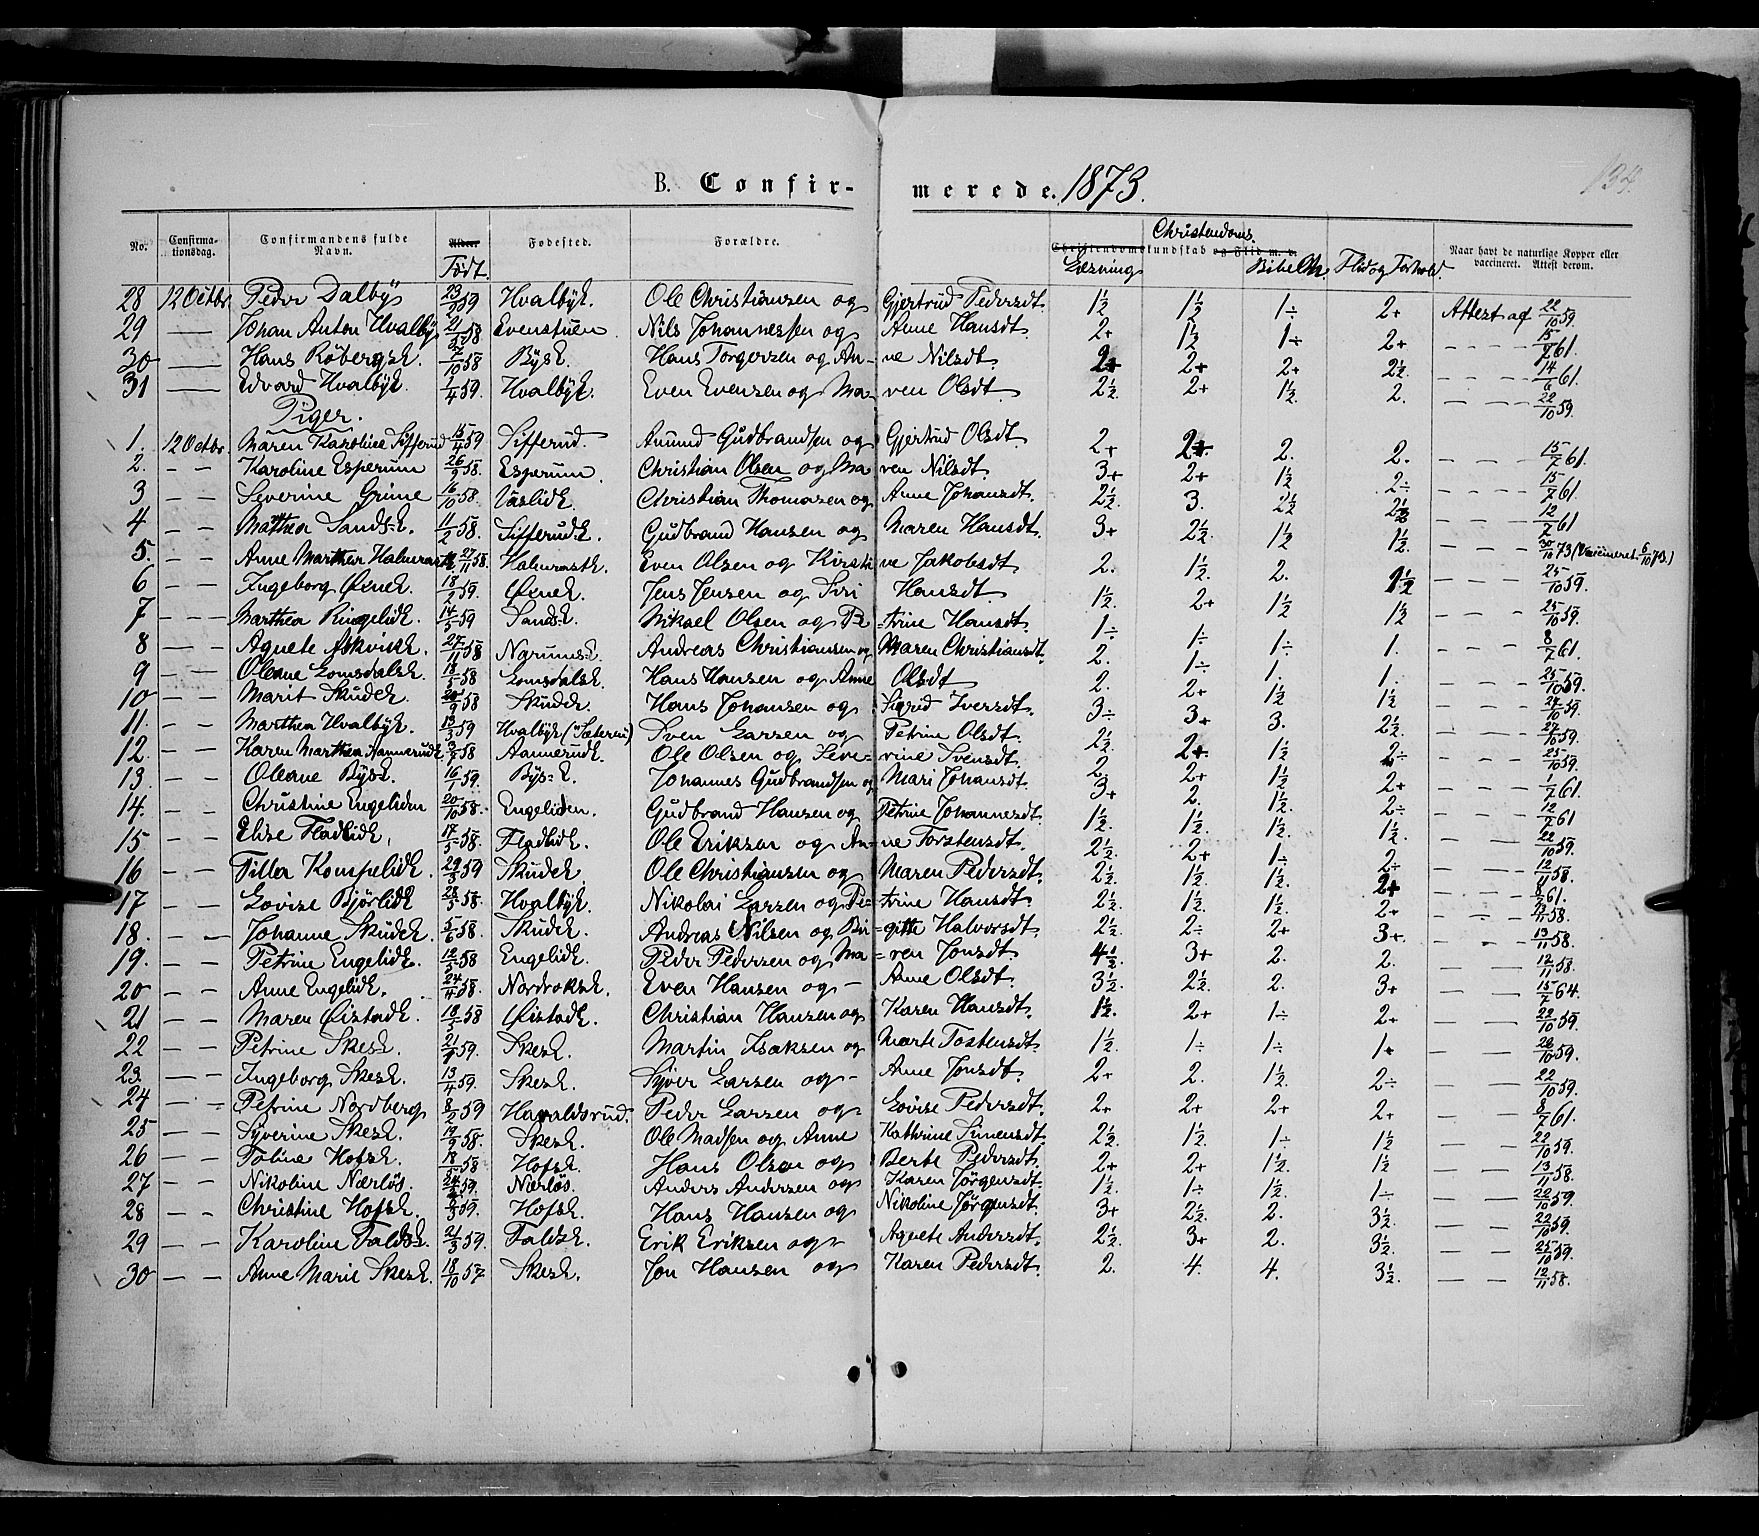 B. Confir-merede. 1873.
134.
No. Confirma-tionsdag. Confirmandens fulde Navn. Alder Født. Fødested. Forældre. Læsning Christendomskundskab og Flid m. v. Christendoms. Flid og Forhold. Naar havt de naturlige Kopper eller vaccineret. Attest derom.
28 12 Octbr. Peder Dalby 23/2 59 Hvalbyk. Ole Christiansen og Gjertrud Pedersdt. 1½ 1½ 1÷ 2+ Attest af 22/10 59.
29 — Johan Anton Hvalby 58 Evenstuen Nils Johannessen og Anne Hansdt. 2+ 1½ 1÷ 2+ - - - - 15/7 61.
30 — Hans Røbergsk. 7/10 58 Bysk. Hans Torgersen og Anne Nilsdt. 2+ 2+ 2+ 2½. - - - 14/6 61.
31 — Edvard Hvalbyk. 1/4 59. Hvalbyk. Even Evensen og Maren Olsdt. 2½. 2+ 1½. 2. - - - 22/10 59.
Piger.
1. 12 Octbr. Maren Karoline Sifferud 15/4 59 Sifferud. Amund Gudbrandsen og Gjertrud Olsdt. 2+ 2+ 2. 2. - - - 15/7 61.
2. - - Karoline Esperum 26/9 58. Esperum. Christian Olsen og Maren Nilsdt. 3+ 2+ 1½ 2÷ - - - 15/7 61.
3 - - Severine Grime 16/10 58. Vaslidk. Christian Thomasen og Anne Johansdt. 2½. 3. 2½ 2½ - - - 12/7 61
4 - - Matthea Sandsk. 11/2 58. Sifferudk. Gudbrand Hansen og Maren Hansdt. 3+ 2½. 1½ 1½. - - - 30/10 73 (Vaccineret 6/10 73.)
5. - - Anne Marthea Halmrastk. 27/11 58. Halmrastk. Even Olsen og Kirstine Jakobsdt. 2. 1½. 2. 1½ - - - 25/10 59.
6 - - Ingeborg Øxnek. 18/2 59. Øxnek. Jens Jensen og Siri Hansdt. 1½. 2+ 1½ 1½ - - - 25/10 59.
7 - - - Marthea Ringelidk. 14/5 59 Sandsk. Mikael Olsen og Petrine Hansdt. 1÷ 1÷ 1÷ 1. - - - 8/7 61.
8 - - Agnete Askvikk. 27/11 58 Narumsk. Andreas Christiansen og Maren Christiansdt. 2. 1÷ 1. 1. - - - 25/10 59.
9 - - Oleane Lomsdalsk. 18/5 58 Lomsdalsk. Hans Hansen og Anne Olsdt 2. 2+ 1½ 1½ - - - 59.
10 - - Marit Skudek. 20/9 58 Skudek. Hans Johansen og Sigrid Iversdt. 3÷ 3+ 3. 2½. - - - 22/10 59.
11. - - Marthea Hvalbyk. 13/3 59 Hvalbyk (Sæteren) Sven Larsen og Petrine Olsdt. 2½. 2+ 1½ 2÷ - - - 25/10 59.
12. - - Karen Marthea Aannerudk. 58 Aannerudk. Ole Olsen og Severine Svensdt. 2 2+ 1½ 2+ - - - 1/7 61.
13. - - Oleane Bysk. 16/1 59. Bys-k. Johannes Gudbrandsen og Mari Johansdt. 3+ 2. 1½. 2÷ - - - 12/7 61
14. - - Christine Engeliden 20/10 58. Engeliden. Gudbrand Hansen og Petrine Johannesdt. 1½. 1½. 1½. 1½. - - - 22/10 59.
15 - - Elise Fladlidk. 17/5 58. Fladlidk. Ole Eriksen og Anne Torstensdt. 2½. 2+ 1÷ 2÷ - - - 12/11 58.
16 - - Tilla Kompelidk. 29/3 59 Skudek. Ole Christiansen og Maren Pedersdt. 2½. 1½. 1½. 2+ - - - 61.
17 - - Lovise Bjørlidk 58. Hvalbyk. Nikolai Larsen og Petrine Hansdt. 2½. 1½. 1½. 2+ - - 58.
18. - - Johanne Skudek. 5/6 58. Skudek. Andreas Nilsen og Birgitte Halvorsdt. 2½. 2÷ 2+ 3+ - - - 13/11 58.
19. - - Petrine Engelidk. 58 Engelidk. Peder Pedersen og Maren Jonsdt. 4½. 3+ 2. 2. - - 12/11 58.
20 - - Anne Engelidk. 24/4 58. Nordroksk. Even Hansen og - Anne Olsdt. 3½. 2½. 2. 3+ - - 15/7 64.
21 - - Maren Øistadk. 18/5 58 Øistadk. Christian Hansen og Karen Hansdt. 1½. 2+ 1÷ 2+ - - 22/10 59.
22 - - Petrine Skesk. 59. Skesk. Martin Isaksen og Marte Tostensdt. 1½. 1÷ 1÷ 1+ - - 28/10 59.
23. - - Ingeborg Skesk. 13/4 59. Skesk. Syver Larsen og - Anne Jonsdt. 2+ 2. 1½. 2÷ - - 22/10 59.
24 - - Petrine Nordberg 8/2 59 Haraldsrud. Peder Larsen og Lovise Pedersdt. 2+ 2+ 2+ 2+ - - 8/7 61.
25 - - Syverine Skesk. 19/9 58. Skesk. Ole Madsen og Anne Kathrine Simensdt. 2½. 1½. 1÷ 1½ - - 22/10 59.
26 - - Toline Hofsk. 18/5 58 Hofsk. Hans Olsen og Berte Pedersdt. 2+ 2+ 1½. 1½ - - 13/11 58.
27 - - Nikoline Nærløs. 59. Nærløs. Anders Andersen og Karen Jørgensdt. 1½. 1÷ 1½. 1÷ - - 22/10 59.
28 - - Christine Hofsk. 59. Hofsk. Hans Hansen og Nikoline Jørgensdt. 3+ 2½. 2. 3½. - - 22/10 59.
29 - - Karoline Faldsk. 21/3 59. Faldsk. Erik Eriksen og Agnete Andersdt. 2½. 3+ 2. 3½. - - 25/10 59.
30 - - Anne Marie Skesk. 18/10 57 Skesk. Jon Hansen og Karen Pedersdt. 2. 4. 4. 3½. - - 12/11 58.